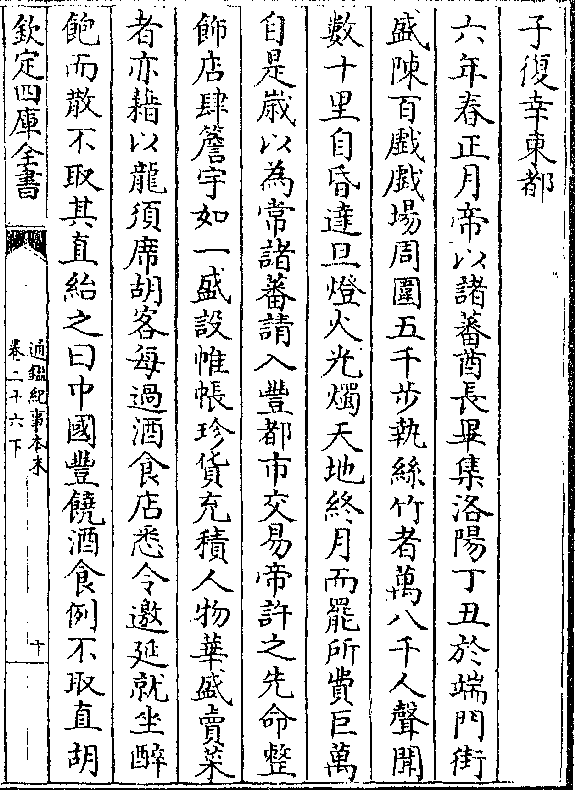 子復幸東都
六年春正月帝以諸蕃酋長畢集洛陽丁丑於端門街
盛陳百戲戲場周圍五千步執絲竹者萬八千人聲聞
數十里自昏達旦燈火光燭天地終月而罷所費巨萬
自是歲以為常諸蕃請入豐都市交易帝許之先命整
飾店肆簷宇如一盛設帷帳珍貨充積人物華盛賣菜
者亦藉以龍須席胡客每過酒食店悉令邀延就坐醉
飽而散不取其直紿之曰中國豐饒酒食例不取直胡
欽定四庫全書
通鑑紀事本末
卷二十六下
十